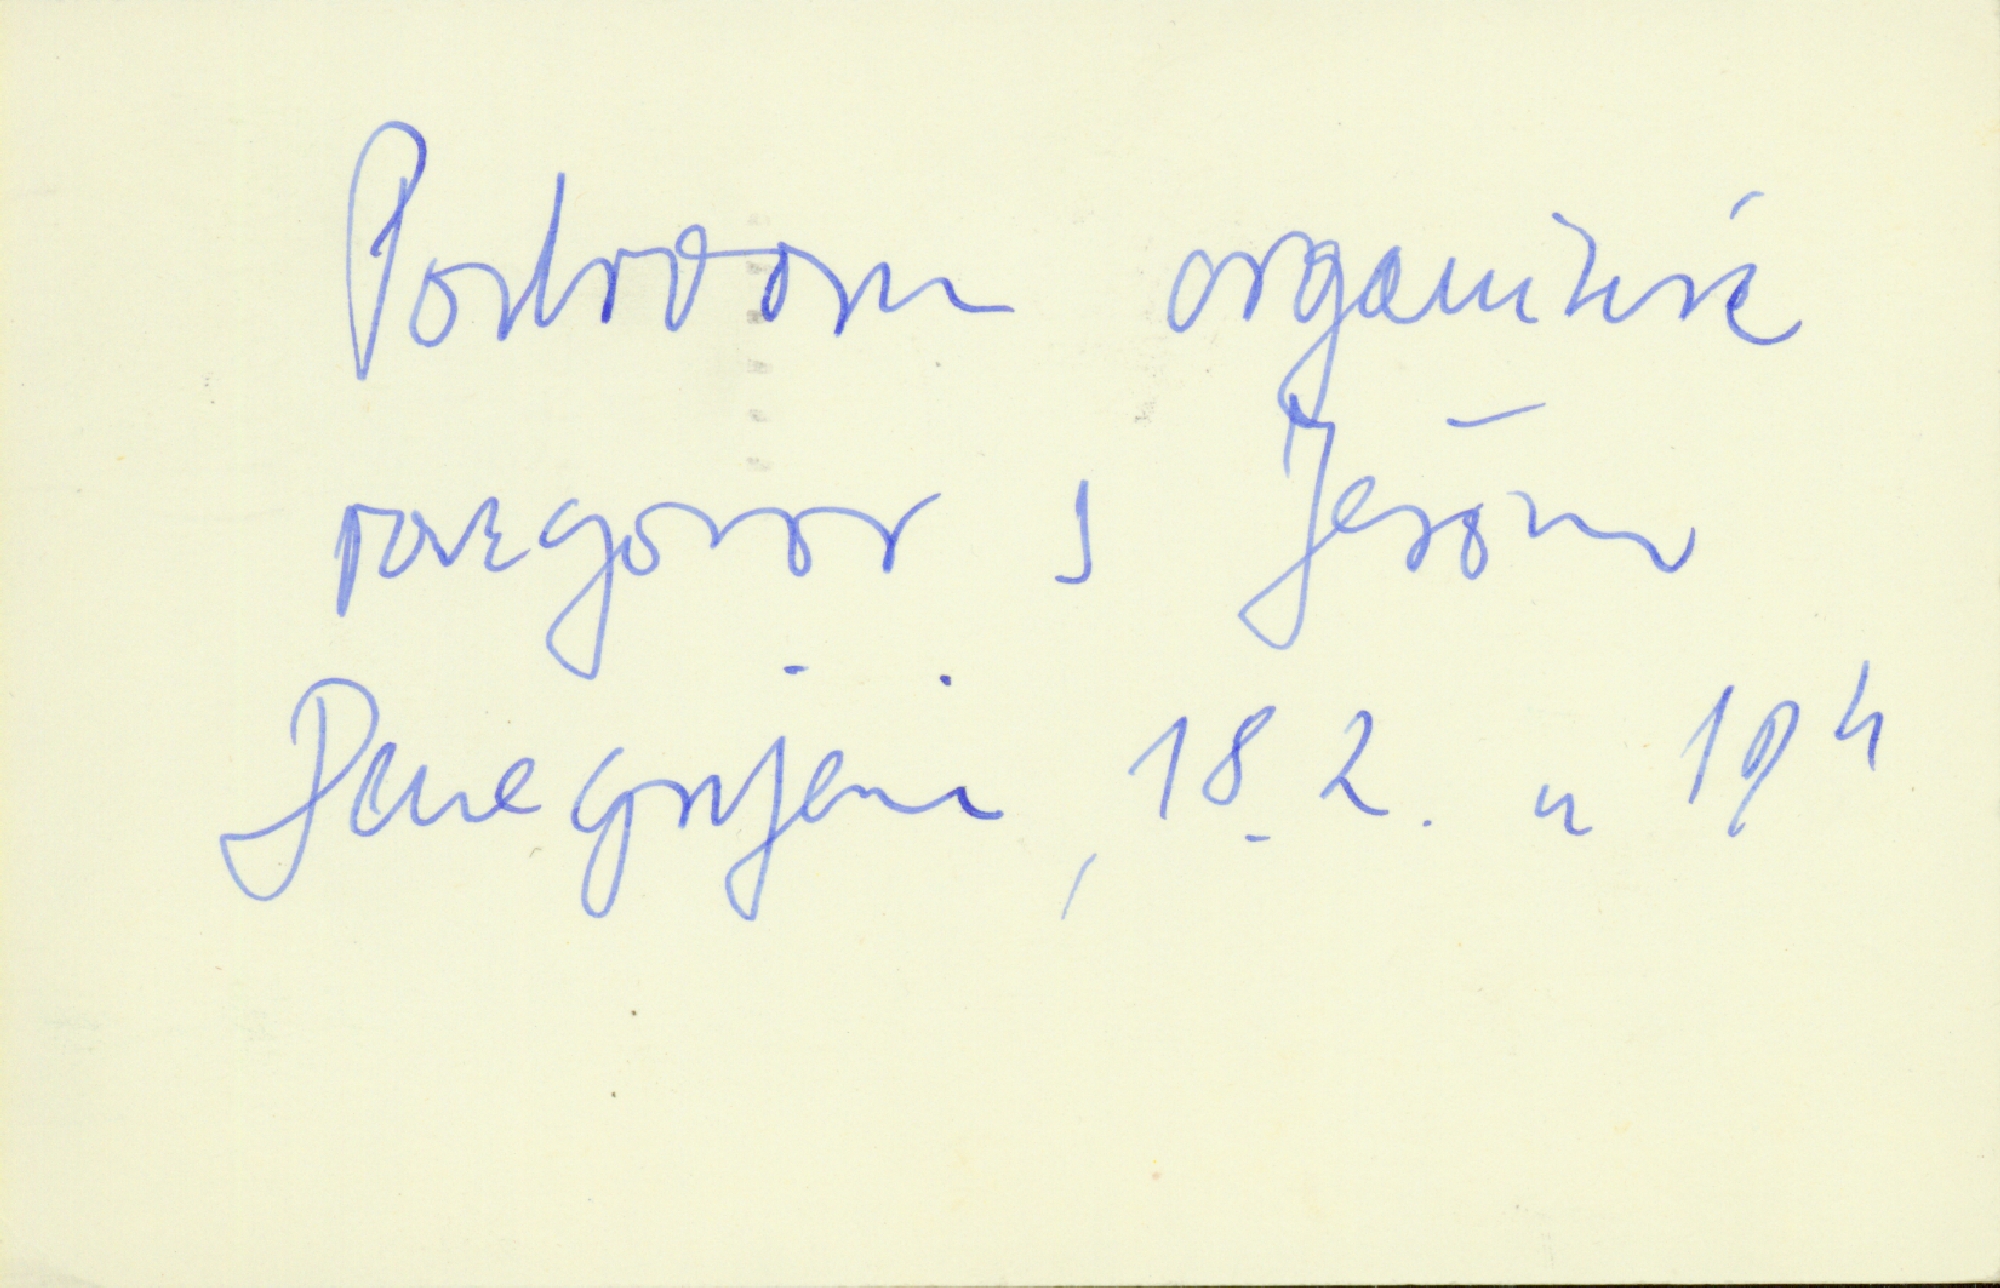 Podroom organizira
razgovor s Ješom
Denegrijem, 18. 2. u 19 h